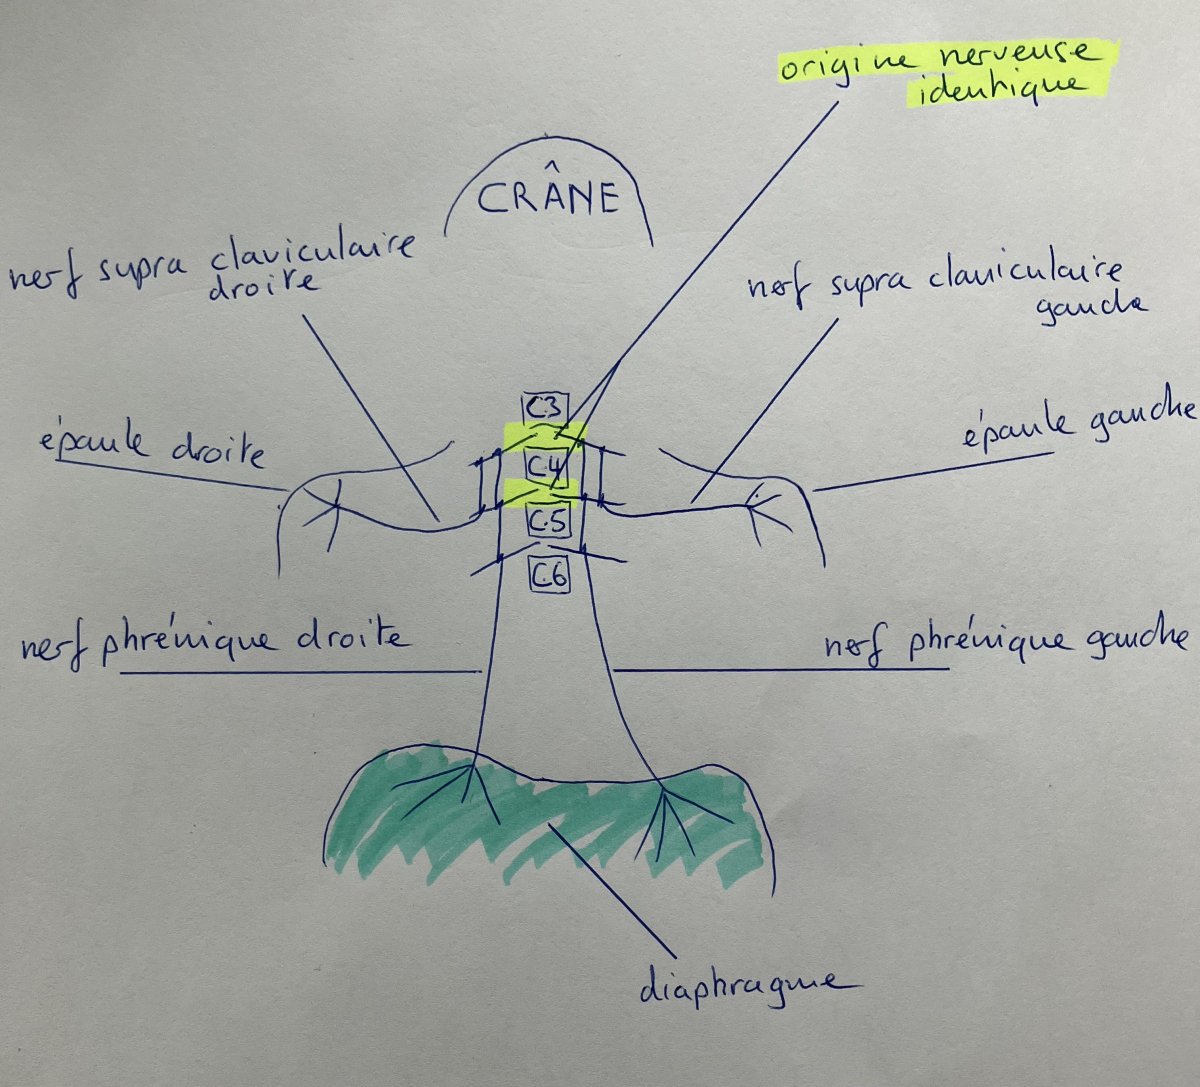 origine nerveuse
identique
CRÂNE
nerf supra claviculaire
droite
nerf supra claviculaire
gauche
C3
épaule droite
épaule gauche
C4
C5
C6
nerf phrénique droite
nerf phrénique gauche
diaphragme